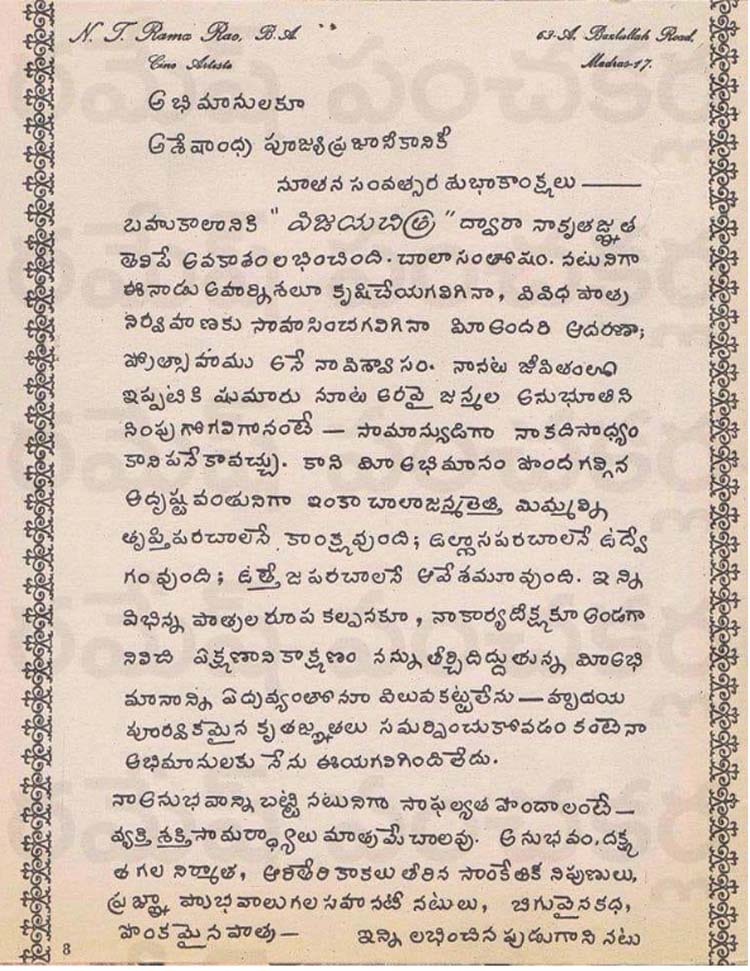 N. T. Rama Rao, B. A.
63-A, Bazlullah Road,
Cine Artiste
Madras-17.
అభిమానులకూ
అశేషాంధ్ర పూజ్యప్రజానీకానికీ
నూతన సంవత్సర శుభాకాంక్షలు ——
బహుకాలానికి "విజయచిత్ర" ద్వారా నాకృతజ్ఞత
తెలిపే అవకాశం లభించింది. చాలా సంతోషం. నటునిగా
ఈనాడు అహర్నిశలూ కృషిచేయగలిగినా, వివిధ పాత్ర
నిర్వహణకు సాహసించగలిగినా మీఅందరి ఆదరణా;
ప్రోత్సాహము అనే నా విశ్వాసం. నానట జీవితంలో
ఇప్పటికి షుమారు నూట అరవై జన్మల అనుభూతిని
నింపుగోగలిగానంటే — సామాన్యుడిగా నాకదిసాధ్యం
కానిపనే కావచ్చు. కాని మీఅభిమానం పొందగల్గిన
అదృష్టవంతునిగా ఇంకా చాలాజన్మలెత్తి మిమ్మల్ని
తృప్తిపరచాలనే కాంక్షవుంది; ఉల్లాసపరచాలనే ఉద్వే
గంవుంది; ఉత్తేజపరచాలనే ఆవేశమూవుంది. ఇన్ని
విభిన్న పాత్రలరూపకల్పనకూ, నాకార్యదీక్షకూ అండగా
నిలిచి ఏక్షణానికాక్షణం నన్ను తీర్చిదిద్దుతున్న మీఅభి
మానాన్ని ఏద్రవ్యంతోనూ విలువకట్టలేను — హృదయ
పూర్వకమైన కృతజ్ఞతలు సమర్పించుకోవడం కంటెనా
అభిమానులకు నేను ఈయగలిగింది లేదు.
నాఅనుభవాన్ని బట్టి నటునిగా సాఫల్యత పొందాలంటే —
వ్యక్తి శక్తిసామర్థ్యాలు మాత్రమే చాలవు. అనుభవం, దక్ష
త గల నిర్మాత, ఆరితేరి కాకలు తీరిన సాంకేతిక నిపుణులు,
ప్రజ్ఞా ప్రాభవాలుగల సహనటీ నటులు, బిగువైనకధ,
పొంకమైన పాత్ర — ఇన్ని లభించిన పుడుగాని నటు
8